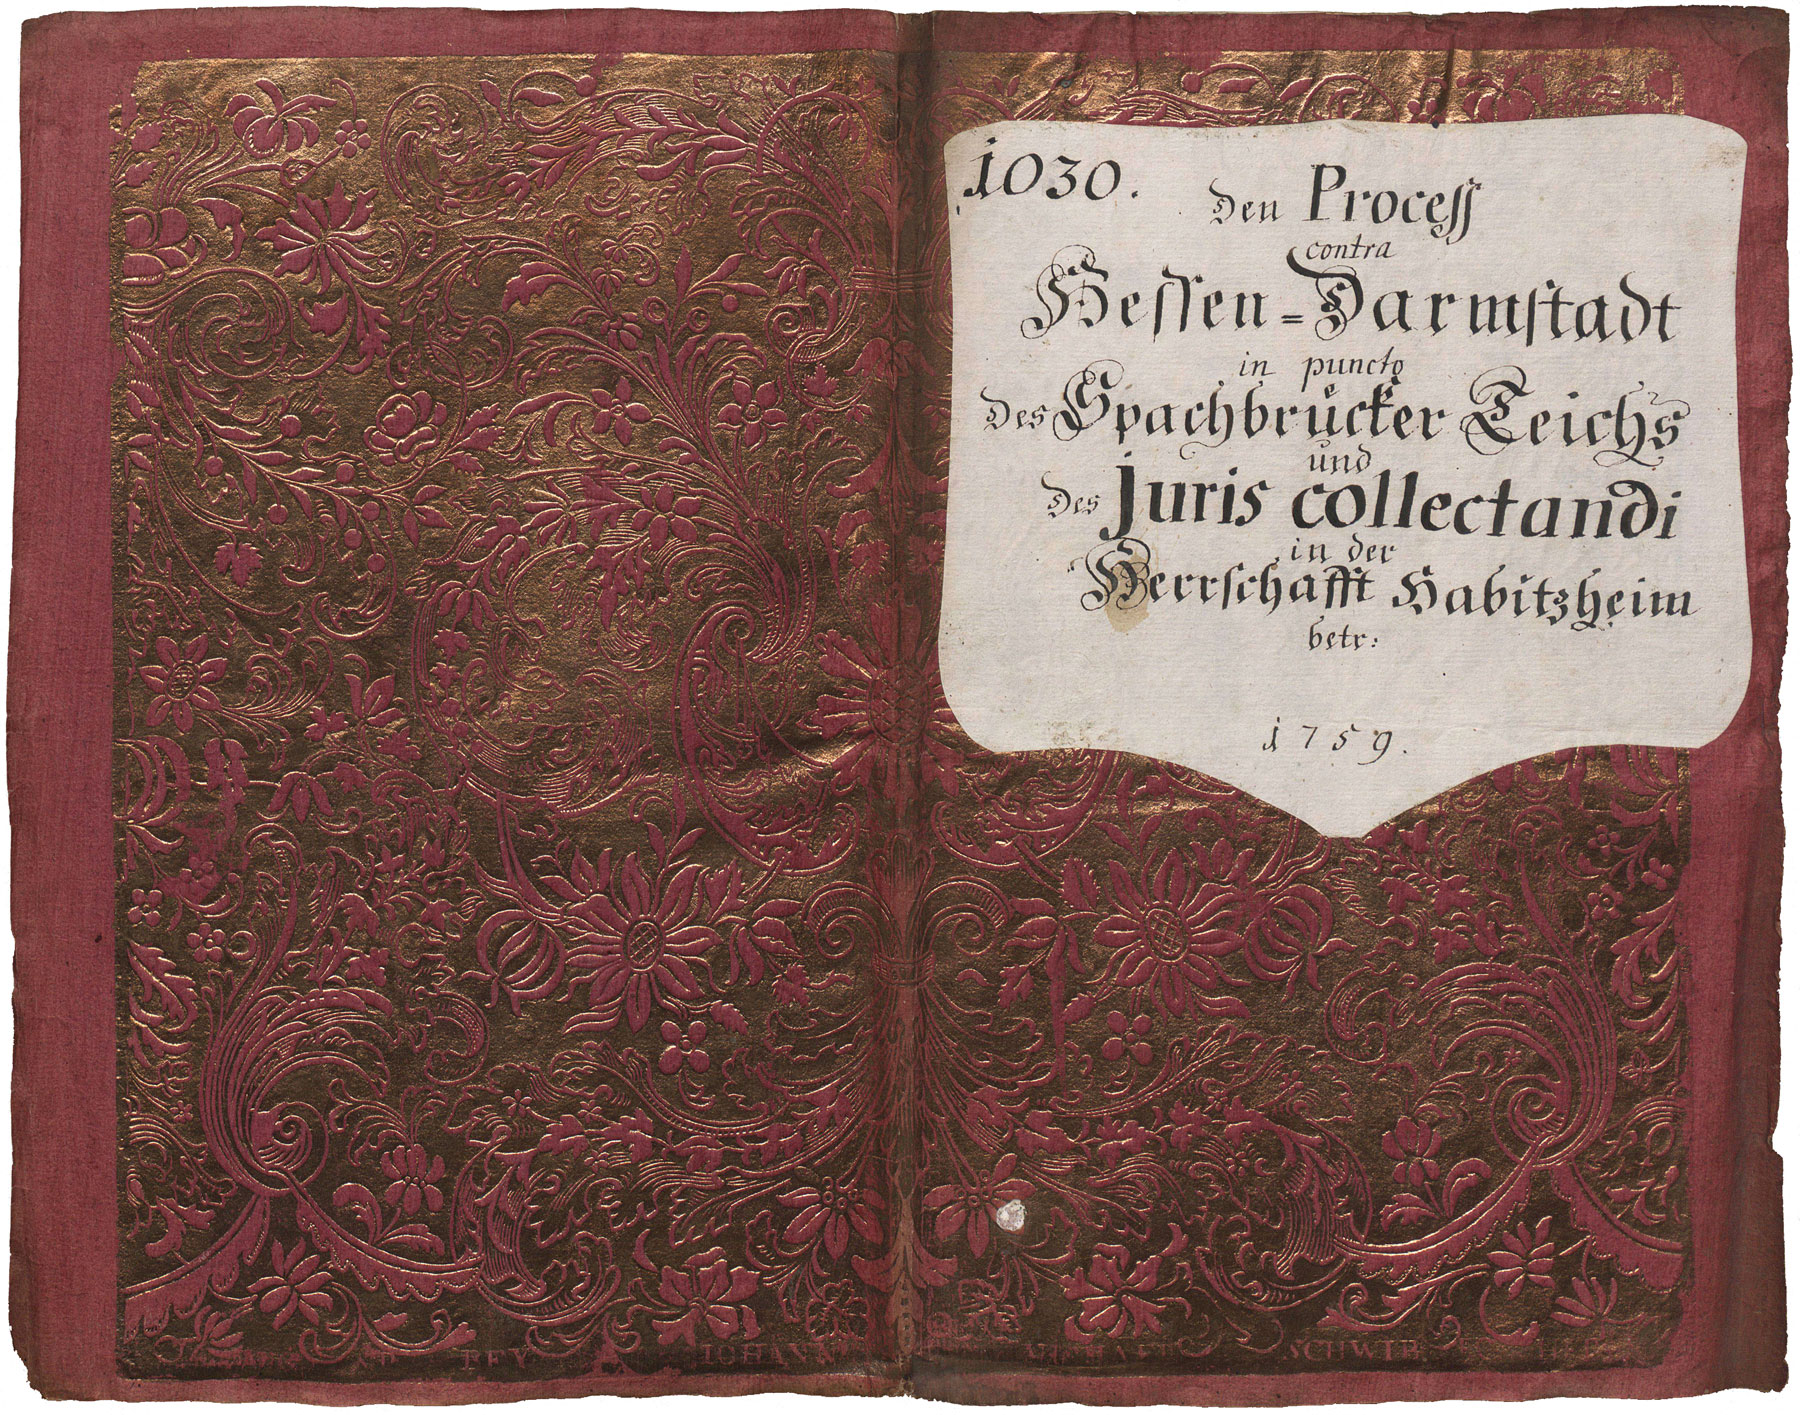 1030.
Den Process
contra
Hessen=Darmstadt
in puncto
des Spachbrücker Teichs
und
des Juris collectandi
in der
Herrschafft Habitzheim
betr:
1759.
BEY IOHANN MICHAEL SCHWIB